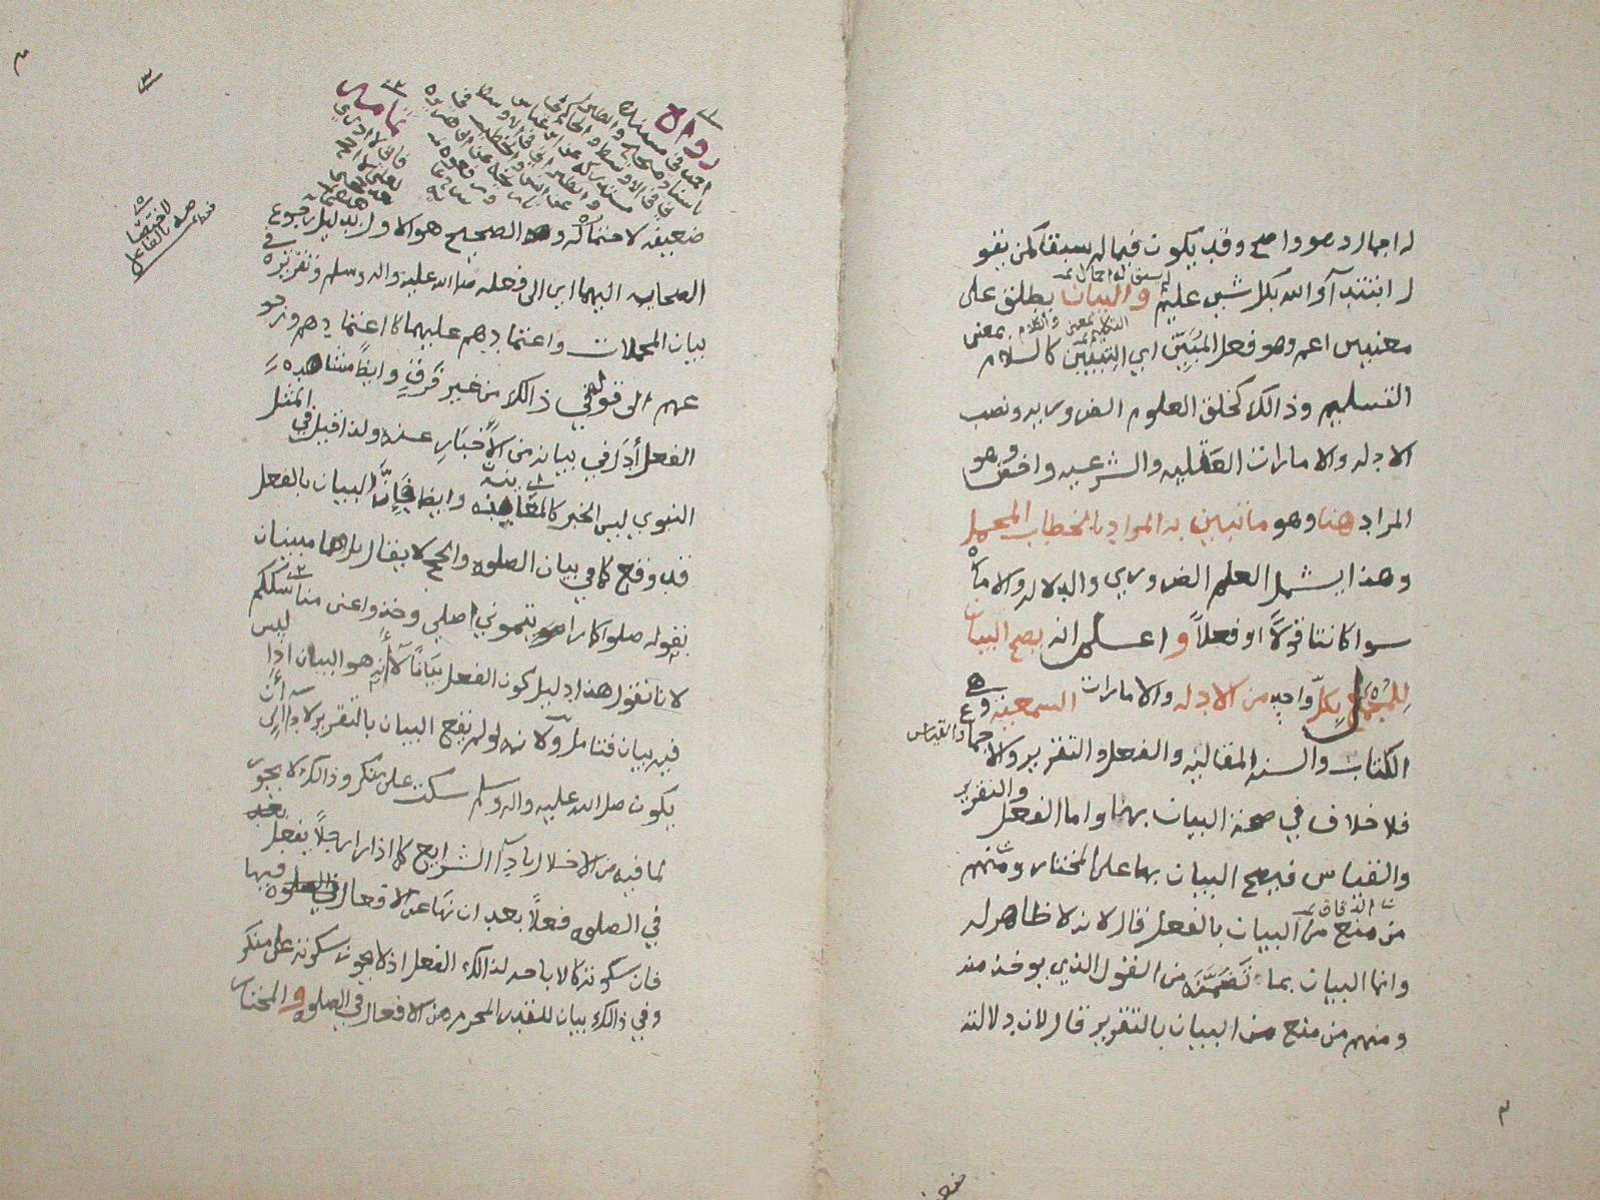 له اجمال وهو واضح وقد يكون فيما لم يسبق كمن يقو
ل ابتداً والله بكل شي عليم والبيان يطلق على
لم يسبق له اجمال
معنيين اعم وهو فعل المُبَيِّن اي التبيين كالسلام بمعنى
التسليم وذالك كخلق العلوم الضروريه ونصب
الادله والامارات العقليه والشرعيه واخص وهو
المراد هنا وهو ما تبين به المراد بالخطاب المجمل
وهذا يشمل العلم الضروري والدلاله والاماره
سوا كانتا قولاً او فعلاً و اعلم انه يصح البيان
للمجمل بِكلّ واحد من الادله والامارات السمعيه وهي
الكتاب والسنه المقاليه والفعل والتقرير والاجماع والقياس
فلا خلاف في صحة البيان بهما واما الفعل والتقرير
والقياس فيصح البيان بها على المختار ومنهم
من منع من البيان بالفعل قال لانه لا ظاهر له
وانما البيان بما تَضَمَّنَه من القول الذي يوخذ منه
ومنهم من منع من البيان بالتقرير قال لان دلالته
رواه
ضعيفه لاحتماله والصحيح هو الاول بدليل رجوع
الصحابه اليهما اي الى فعله صلى الله عليه واله وسلم وتقريره في
بيان المجملات واعتمادهم عليهما كاعتمادهم ورجو
عهم الى قوله في ذالك من غير فرقٍ وايضاً مشاهدة
الفعل أدَل في بيانه من الأخبَارِ عنه ولذا قيل في المثل
النبوي ليس الخبر كالمعاينه وايضا فَإِنَّ البيان بالفعل
قد وقع كما في بيان الصلوه والحج لا يقال بل هما مبينان
بقوله صلوا كما رايتموني اصلي وخذوا عني مناسككم
لانا نقول هذا دليل كون الفعل بَيَاناً لا أنه هو البيان اذا ليس
فيه بيان فتامل ولانه لو لم يقع البيان بالتقرير لادا الى أن
يكون صلى الله عليه واله وسلم سكت على منكر وذالك لا يجوز
لما فيه من الاخلال بادآ الشرايع كما اذا را رجلاً يفعل
في الصلوه فعلاً بعد ان نهَا عن الافعال فيها
فان سكوته كالاباحه لذالك الفعل اذ لا يجوز سكوته على منكر
وفي ذالك بيان للقدر المحرم من الافعال في الصلوه و المختار